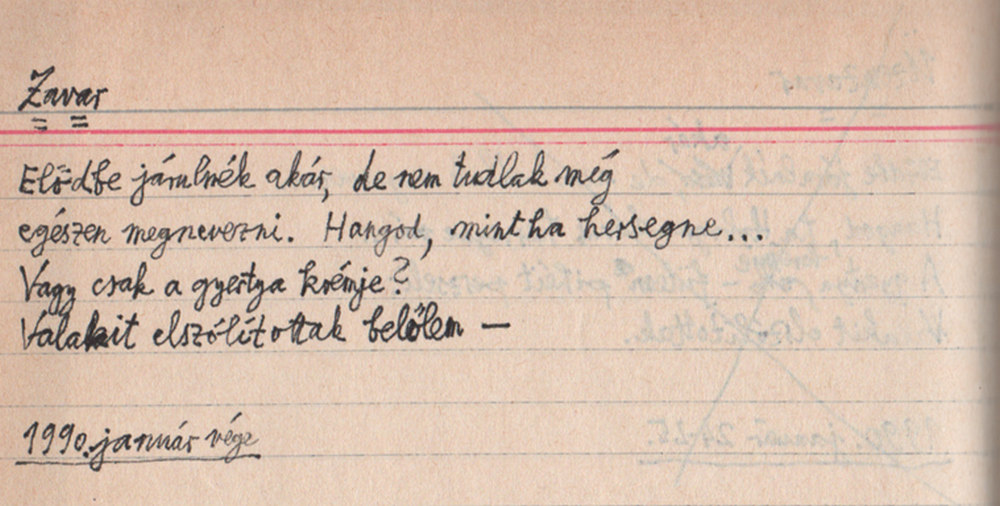 Zavar
Elődbe járulnék akár, de nem tudlak még
egészen megnevezni. Hangod, mintha hersegne...
Vagy csak a gyertya krémje?
Valakit elszólítottak belőlem –
1990. január vége